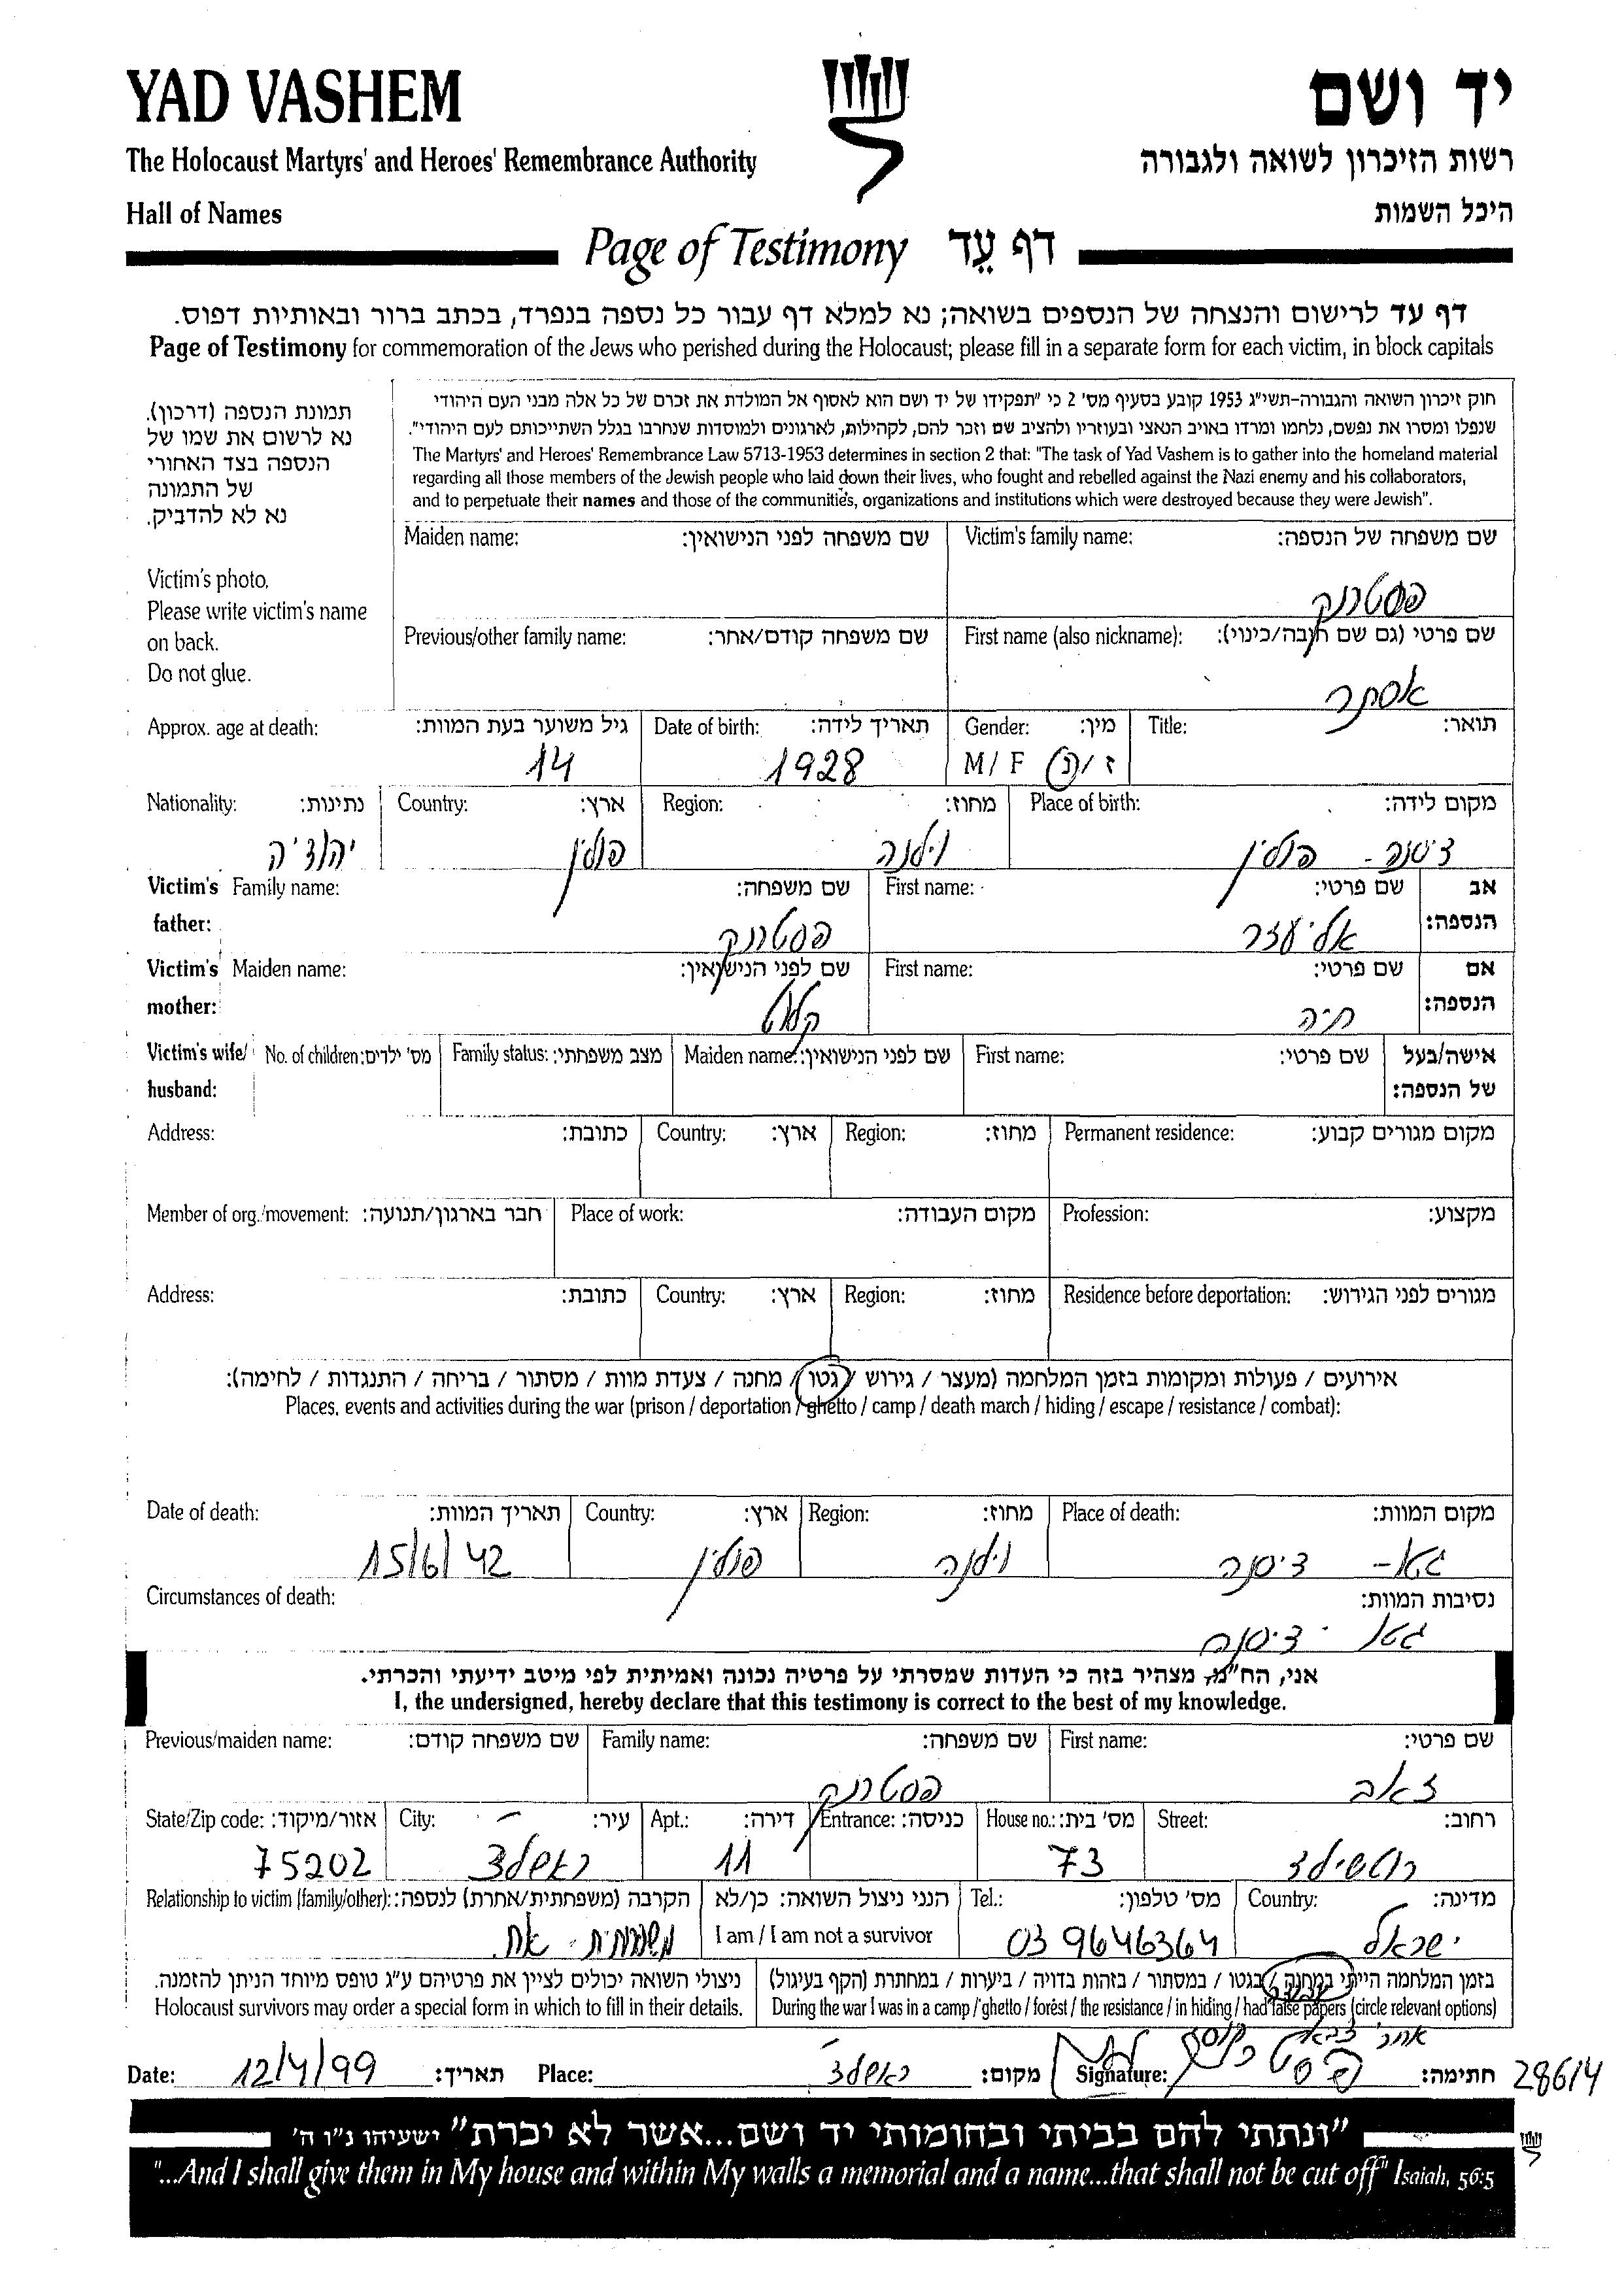 YAD VASHEM
יד ושם
The Holocaust Martyrs' and Heroes' Remembrance Authority
רשות הזיכרון לשואה ולגבורה
Hall of Names
היכל השמות
Page of Testimony דף עֵד
דף עד לרישום והנצחה של הנספים בשואה; נא למלא דף עבור כל נספה בנפרד, בכתב ברור ובאותיות דפוס.
Page of Testimony for commemoration of the Jews who perished during the Holocaust; please fill in a separate form for each victim, in block capitals
תמונת הנספה (דרכון).
נא לרשום את שמו של
הנספה בצד האחורי
של התמונה
נא לא להדביק.
Victim's photo.
Please write victim's name
on back.
Do not glue.
חוק זיכרון השואה והגבורה-תשי"ג 1953 קובע בסעיף מס' 2 כי "תפקידו של יד ושם הוא לאסוף אל המולדת את זכרם של כל אלה מבני העם היהודי
שנפלו ומסרו את נפשם, נלחמו ומרדו באויב הנאצי ובעוזריו ולהציב שם וזכר להם, לקהילות, לארגונים ולמוסדות שנחרבו בגלל השתייכותם לעם היהודי".
The Martyrs' and Heroes' Remembrance Law 5713-1953 determines in section 2 that: "The task of Yad Vashem is to gather into the homeland material
regarding all those members of the Jewish people who laid down their lives, who fought and rebelled against the Nazi enemy and his collaborators,
and to perpetuate their names and those of the communities, organizations and institutions which were destroyed because they were Jewish".
Maiden name: שם משפחה לפני הנישואין: Victim's family name: שם משפחה של הנספה:
פסטרנק
Previous/other family name: שם משפחה קודם/אחר: First name (also nickname): שם פרטי (גם שם חיבה/כינוי):
אסתר
Approx. age at death: גיל משוער בעת המוות: Date of birth: תאריך לידה: Gender: מין: Title: תואר:
14 1928 M / F ז / נ
Nationality: נתינות: Country: ארץ: Region: מחוז: Place of birth: מקום לידה:
יהודיה פולין וילנה דיסנה - פולין
Victim's father: Family name: שם משפחה: First name: שם פרטי: אב הנספה:
פסטרנק אליעזר
Victim's mother: Maiden name: שם לפני הנישואין: First name: שם פרטי: אם הנספה:
חיה
Victim's wife/ husband: No. of children: מס' ילדים: Family status: מצב משפחתי: Maiden name: שם לפני הנישואין: First name: שם פרטי: אישה/בעל של הנספה:
Address: כתובת: Country: ארץ: Region: מחוז: Permanent residence: מקום מגורים קבוע:
Member of org./movement: חבר בארגון/תנועה: Place of work: מקום העבודה: Profession: מקצוע:
Address: כתובת: Country: ארץ: Region: מחוז: Residence before deportation: מגורים לפני הגירוש:
אירועים / פעולות ומקומות בזמן המלחמה (מעצר / גירוש / גטו / מחנה / צעדת מוות / מסתור / בריחה / התנגדות / לחימה):
Places, events and activities during the war (prison / deportation / ghetto / camp / death march / hiding / escape / resistance / combat):
Date of death: תאריך המוות: Country: ארץ: Region: מחוז: Place of death: מקום המוות:
15/6/42 פולין וילנה דיסנה
Circumstances of death: נסיבות המוות:
גטו דיסנה
אני, הח"מ, מצהיר בזה כי העדות שמסרתי על פרטיה נכונה ואמיתית לפי מיטב ידיעתי והכרתי.
I, the undersigned, hereby declare that this testimony is correct to the best of my knowledge.
Previous/maiden name: שם משפחה קודם: Family name: שם משפחה: First name: שם פרטי:
פסטרנק זאב
State/Zip code: אזור/מיקוד: City: עיר: Apt.: דירה: Entrance: כניסה: House no.: מס' בית: Street: רחוב:
75202 ראשלצ 11 73 רוטשילד
Relationship to victim (family/other): הקרבה (משפחתית/אחרת) לנספה: הנני ניצול השואה: כן/לא Tel.: מס' טלפון: Country: מדינה:
משפחתית - אח. I am / I am not a survivor 03 9646364 ישראל
ניצולי השואה יכולים לציין את פרטיהם ע"ג טופס מיוחד הניתן להזמנה. בזמן המלחמה הייתי במחנה / בגטו / במסתור / בזהות בדויה / ביערות / במחתרת (הקף בעיגול)
Holocaust survivors may order a special form in which to fill in their details. During the war I was in a camp / ghetto / forest / the resistance / in hiding / had false papers (circle relevant options)
Date: 12/4/99 תאריך: Place: ראשלצ מקום: Signature: חתימה: 28614
"ונתתי להם בביתי ובחומותי יד ושם...אשר לא יכרת" ישעיהו נ"ו ה'
"...And I shall give them in My house and within My walls a memorial and a name...that shall not be cut off" Isaiah, 56:5